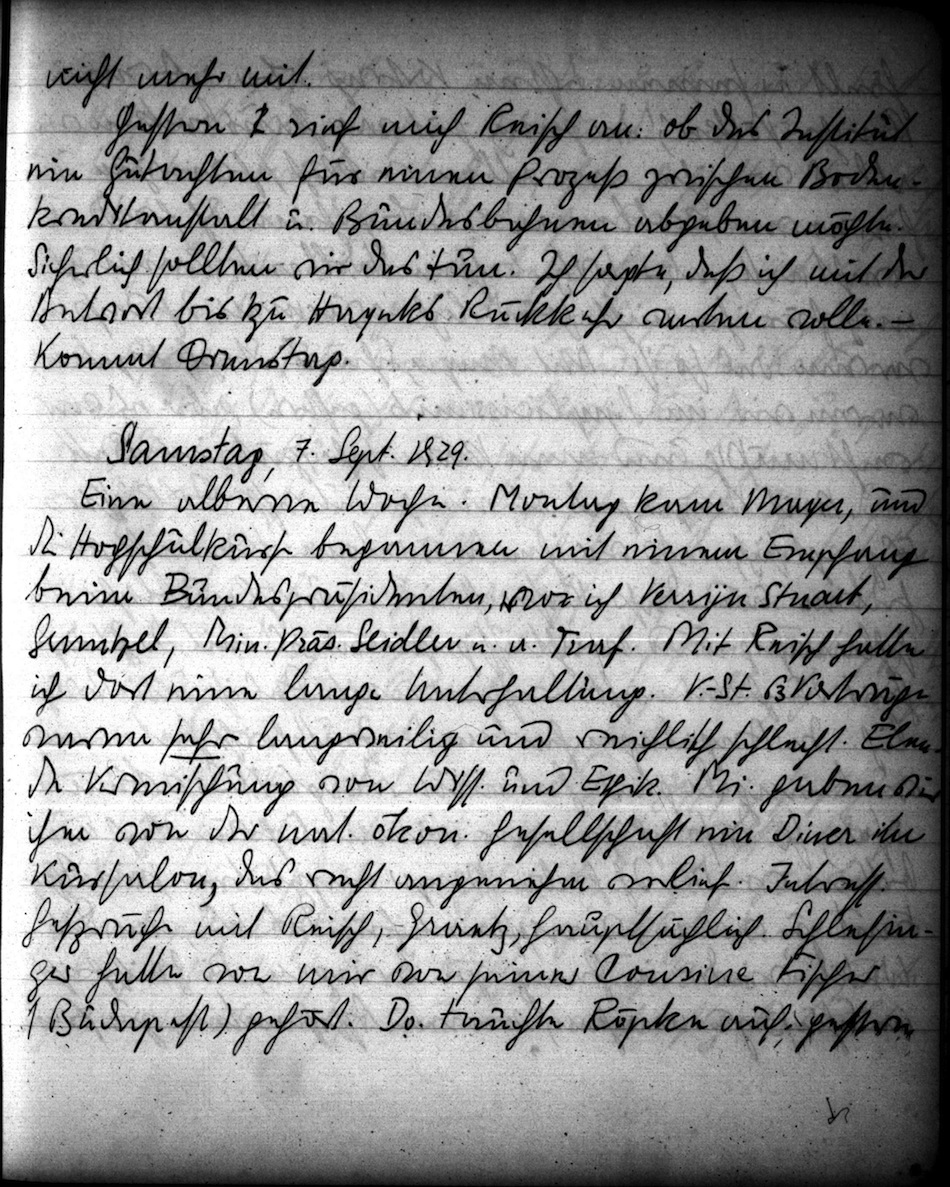 nicht mehr mit.
Gestern rief mich Reisch an: ob das Institut
ein Gutachten für einen Prozeß zwischen Boden-
kreditanstalt u. Bundesbahnen abgeben möchte.
Sicherlich sollten wir das tun. Ich sagte, daß ich mit der
Antwort bis zu Hayeks Rückkehr warten wolle. –
Kommt Dienstag.
Samstag, 7. Sept. 1929.
Eine alberne Woche. Montag kam Mayer, und
die Hochschulkurse begannen mit einem Empfang
beim Bundespräsidenten, wo ich Verrijn Stuart,
Min. Präs. Seidler u. a. traf. Mit Reisch hatte
ich dort eine lange Unterhaltung. V.-St. Vorträge
waren sehr langweilig und reichlich schlecht. Elen-
de Vermischung von Wiss. und Ethik. Mi. gaben wir
ihm von der nat. ökon. Gesellschaft ein Diner im
Kursalon, das recht angenehm verlief. Interess.
Gespräche mit Reisch, hauptsächlich. Schlesin-
ger hatte von mir von seiner Cousine Fischer
(Budapest) gehört. Do. tauchte Röpke auf; gestern